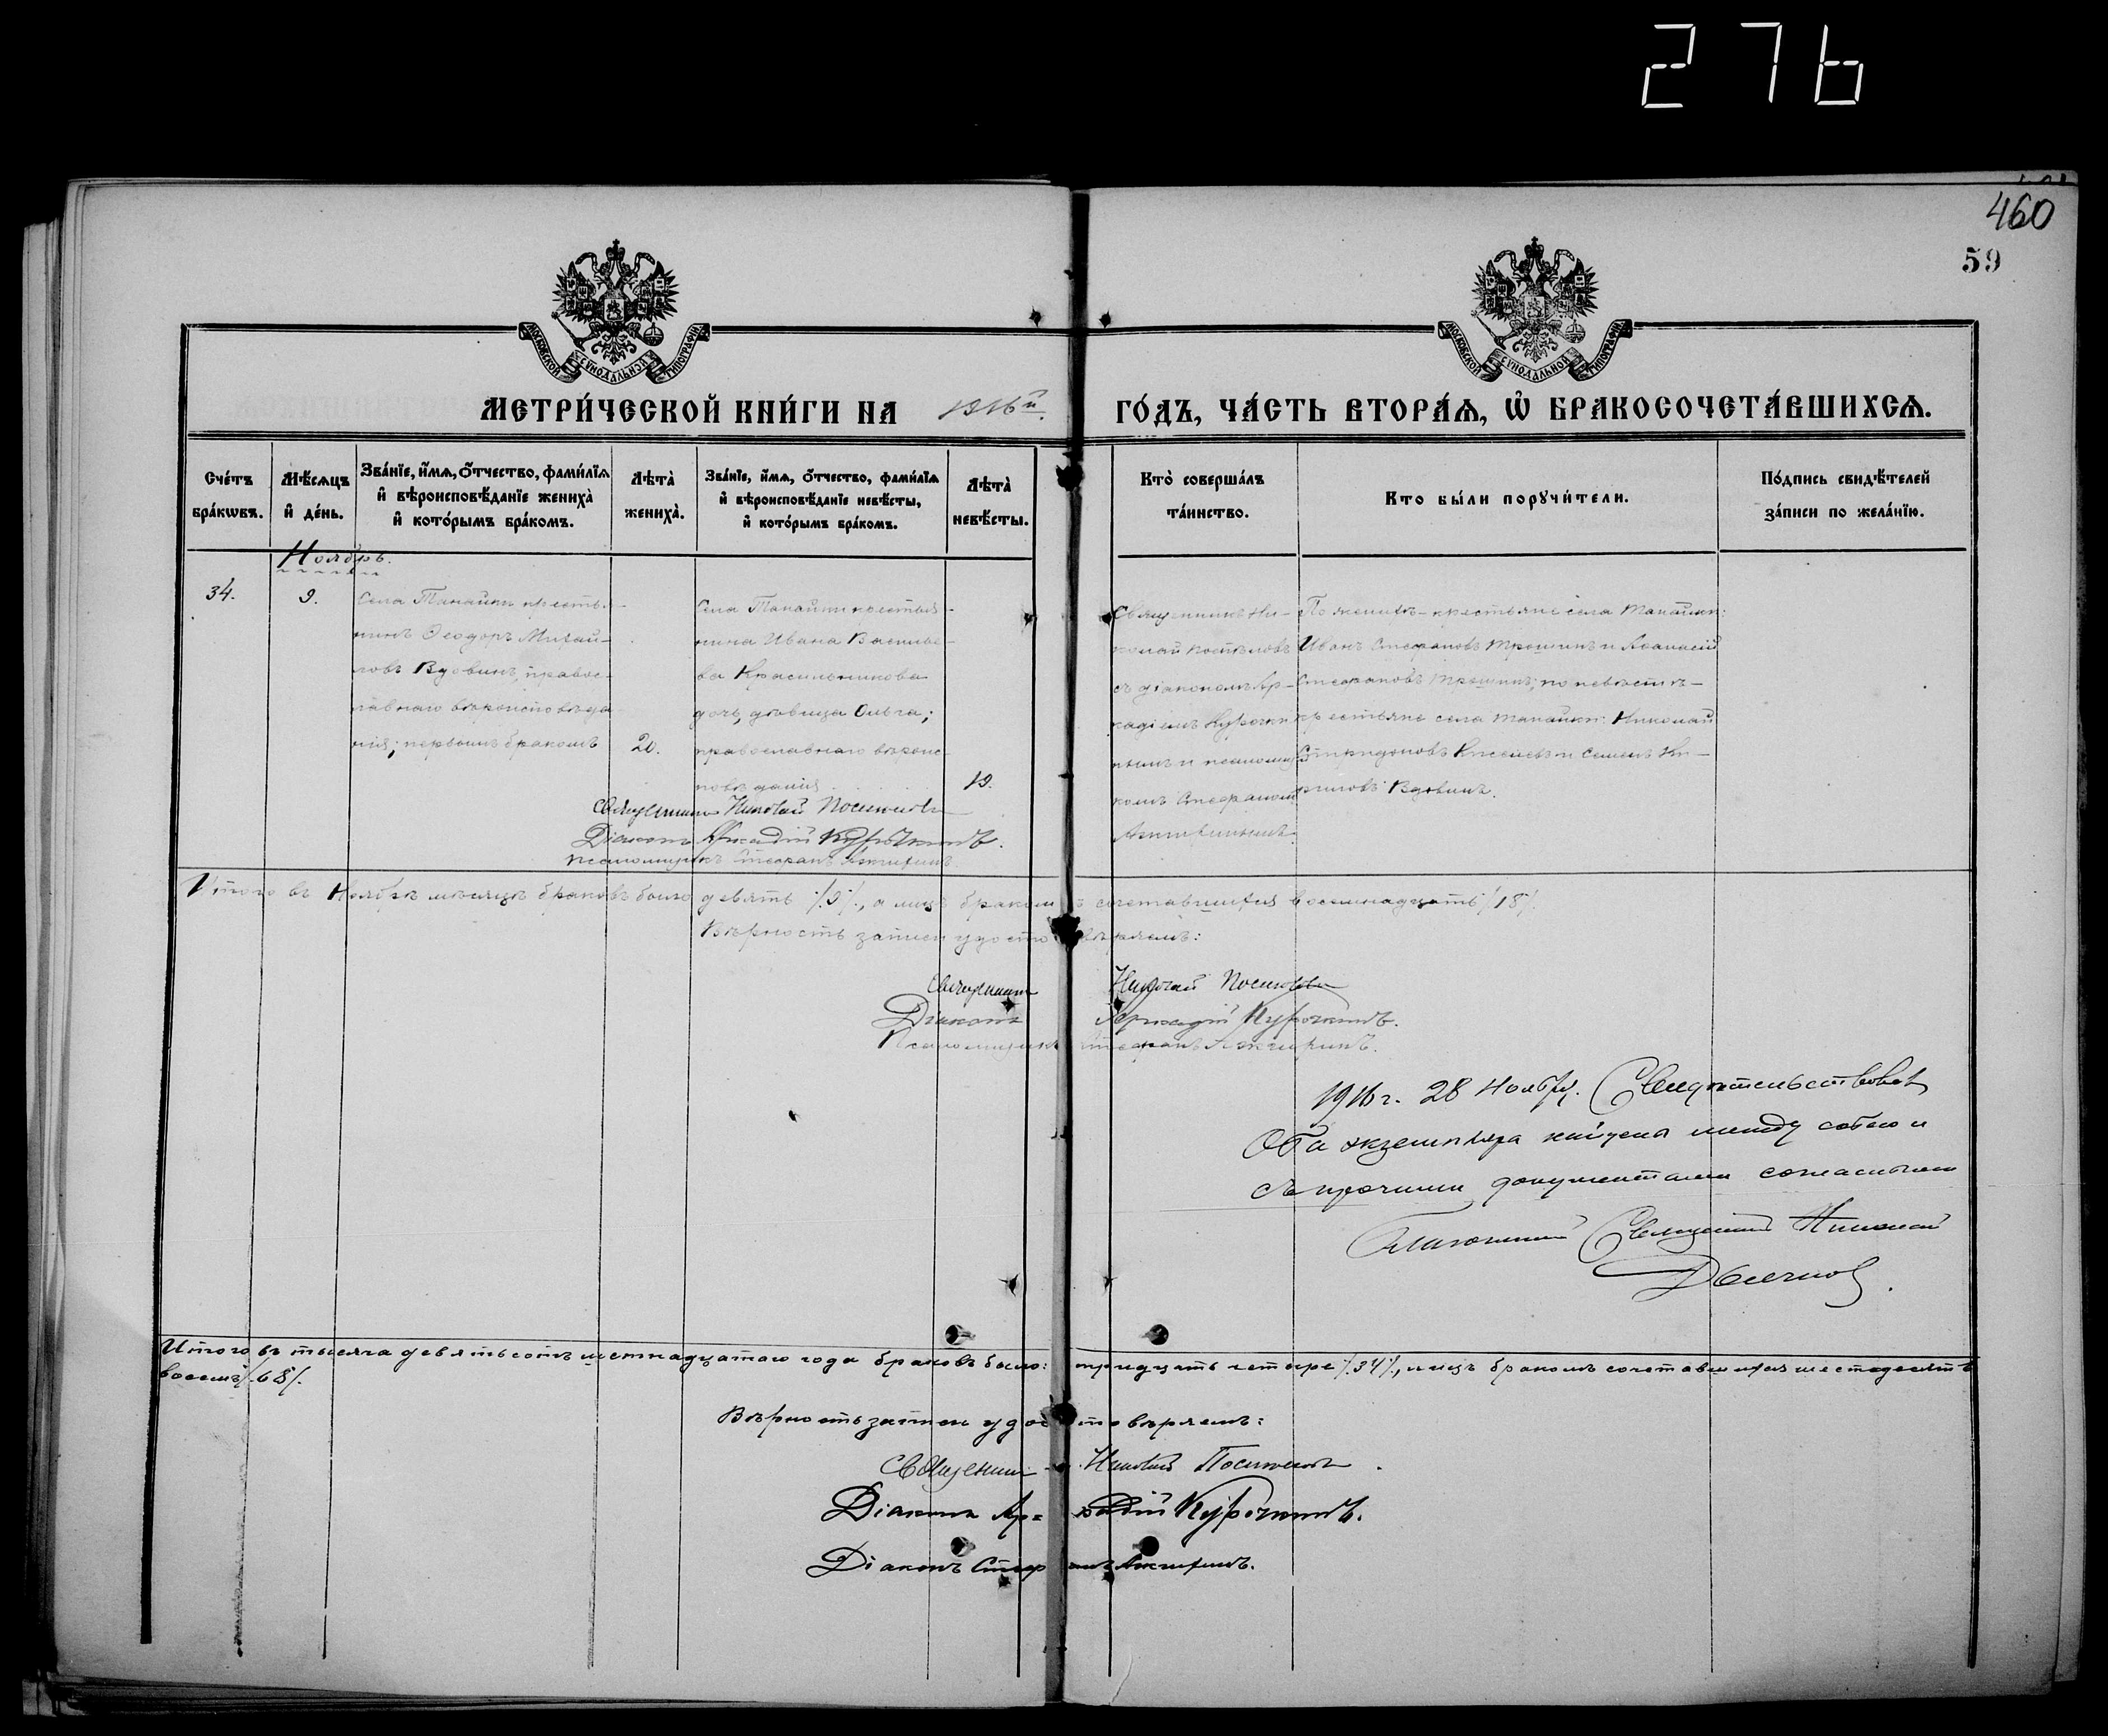 276
460
59
МОСКОВСКОЙ СѴНОДАЛЬНОЙ ТИПОГРАФІИ
МОСКОВСКОЙ СѴНОДАЛЬНОЙ ТИПОГРАФІИ
МЕТРИ́ЧЕСКОЙ КНИ́ГИ НА 1916й. ГО́ДЪ, ЧА́СТЬ ВТОРА́Ѧ, Ѡ҆ БРАКОСОЧЕТА́ВШИХСѦ.
Сче́тъ бра́кѡвъ.
Мѣ́сѧцъ и҆ де́нь.
Зва́нїе, и҆́мѧ, ѻ҆́тчество, фами́лїѧ и҆ вѣроисповѣ́данїе жениха̀ и҆ кото́рымъ бра́комъ.
Лѣта̀ жениха̀.
Зва́нїе, и҆́мѧ, ѻ҆́тчество, фами́лїѧ и҆ вѣроисповѣ́данїе невѣ́сты, и҆ кото́рымъ бра́комъ.
Лѣта̀ невѣ́сты.
Кто̀ соверша́лъ та́инство.
Кто бы́ли порꙋчи́тели.
По́дпись свидѣ́телей за́писи по жела́нїю.
Ноябрь.
34.
9.
Села Танайки крестья-
нинъ Ѳеодоръ Михай-
ловъ Вдовинъ, правос-
лавнаго вѣроисповѣда
нія; первымъ бракомъ
20.
Села Танайки крестья-
нина Ивана Василье-
ва Красильникова
дочь, дѣвица Ольга;
православнаго вѣроис-
повѣданія
19.
Священникъ Ни-
колай Поспѣловъ
съ діакономъ Ар-
кадіемъ Курочки
нымъ и псаломщ
комъ Стефаномъ
По женихѣ - крестьяне села Танайки:
Иванъ Стефановъ Трошинъ и Аѳанасій
Стефановъ Трошинъ; по невѣстѣ -
крестьяне села Танайки: Николай
Спиридоновъ Киселевъ и Семенъ Ки-
рилловъ Вдовинъ.
Священникъ Николай Поспѣловъ
Діаконъ Аркадій Курочкинъ.
Псаломщикъ Стефанъ
Итого въ Ноябрѣ мѣсяцѣ браковъ было девять /9/, а лицъ бракомъ сочетавшихся восемнадцать /18/.
Вѣрность записи удостовѣряемъ:
Священникъ Николай Поспѣловъ
Діаконъ Аркадій Курочкинъ.
Псаломщикъ Стефанъ
1916 г. 28 Ноября. Свидѣтельствовалъ
Оба экземпляра найдены между собою и
съ прочими документами согласными
Благочинный Священникъ Николай
Итого въ тысяча девятьсотъ шестнадцатаго года браковъ было: тридцать четыре /34/, а лицъ бракомъ сочетавшихся шестьдесятъ
восемь /68/.
Вѣрность записи удостовѣряемъ:
Священникъ Николай Поспѣловъ.
Діаконъ Аркадій Курочкинъ.
Діаконъ Стефанъ